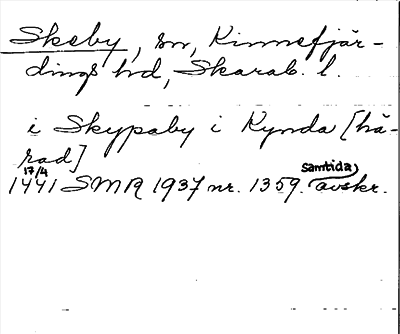 Skeby, sn, Kinnefjär-
dings hd, Skarab. l.
i Skypaby i Kynda [hä-
rad]
17/4 samtida
1441 SMR 1937 nr. 1359. avskr.